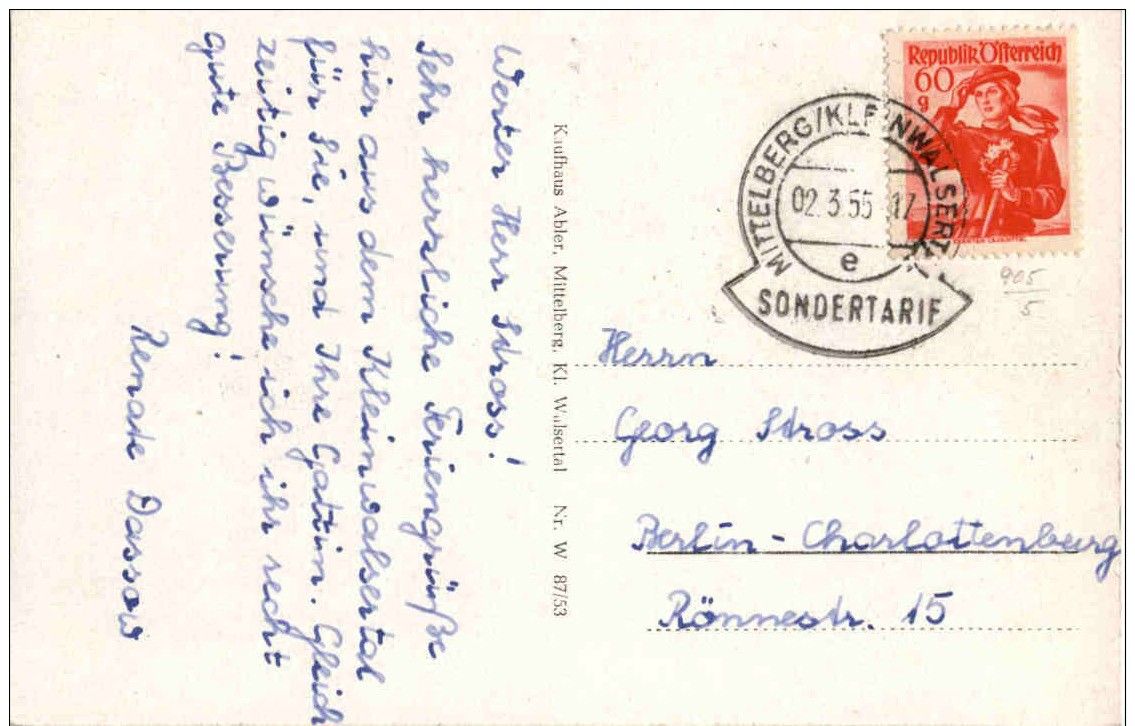 Werter Herr Stross!
Sehr herzliche Feriengrüße
hier aus dem Kleinwalsertal
für Sie, und Ihre Gattin. Gleich
zeitig wünsche ich ihr recht
gute Besserung!
Renate Dassow
Kaufhaus Abler, Mittelberg, Kl. Walsertal Nr. W 87/53
Republik Österreich
60
g
MITTELBERG/KLEINWALSERTAL
02.3.55 17
e
SONDERTARIF
905
5
Herrn
Georg Stross
Berlin-Charlottenburg
Rönnestr. 15